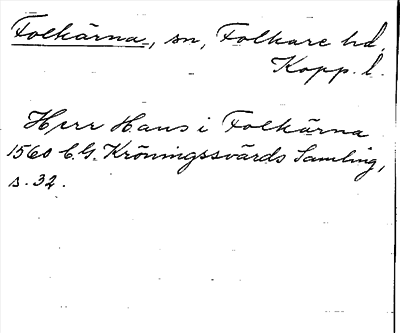 Folkärna, sn, Folkare hd.
Kopp. l.
Herr Hans i Folkärna
1560 C.G. Kröningssvärds Samling,
s. 32.